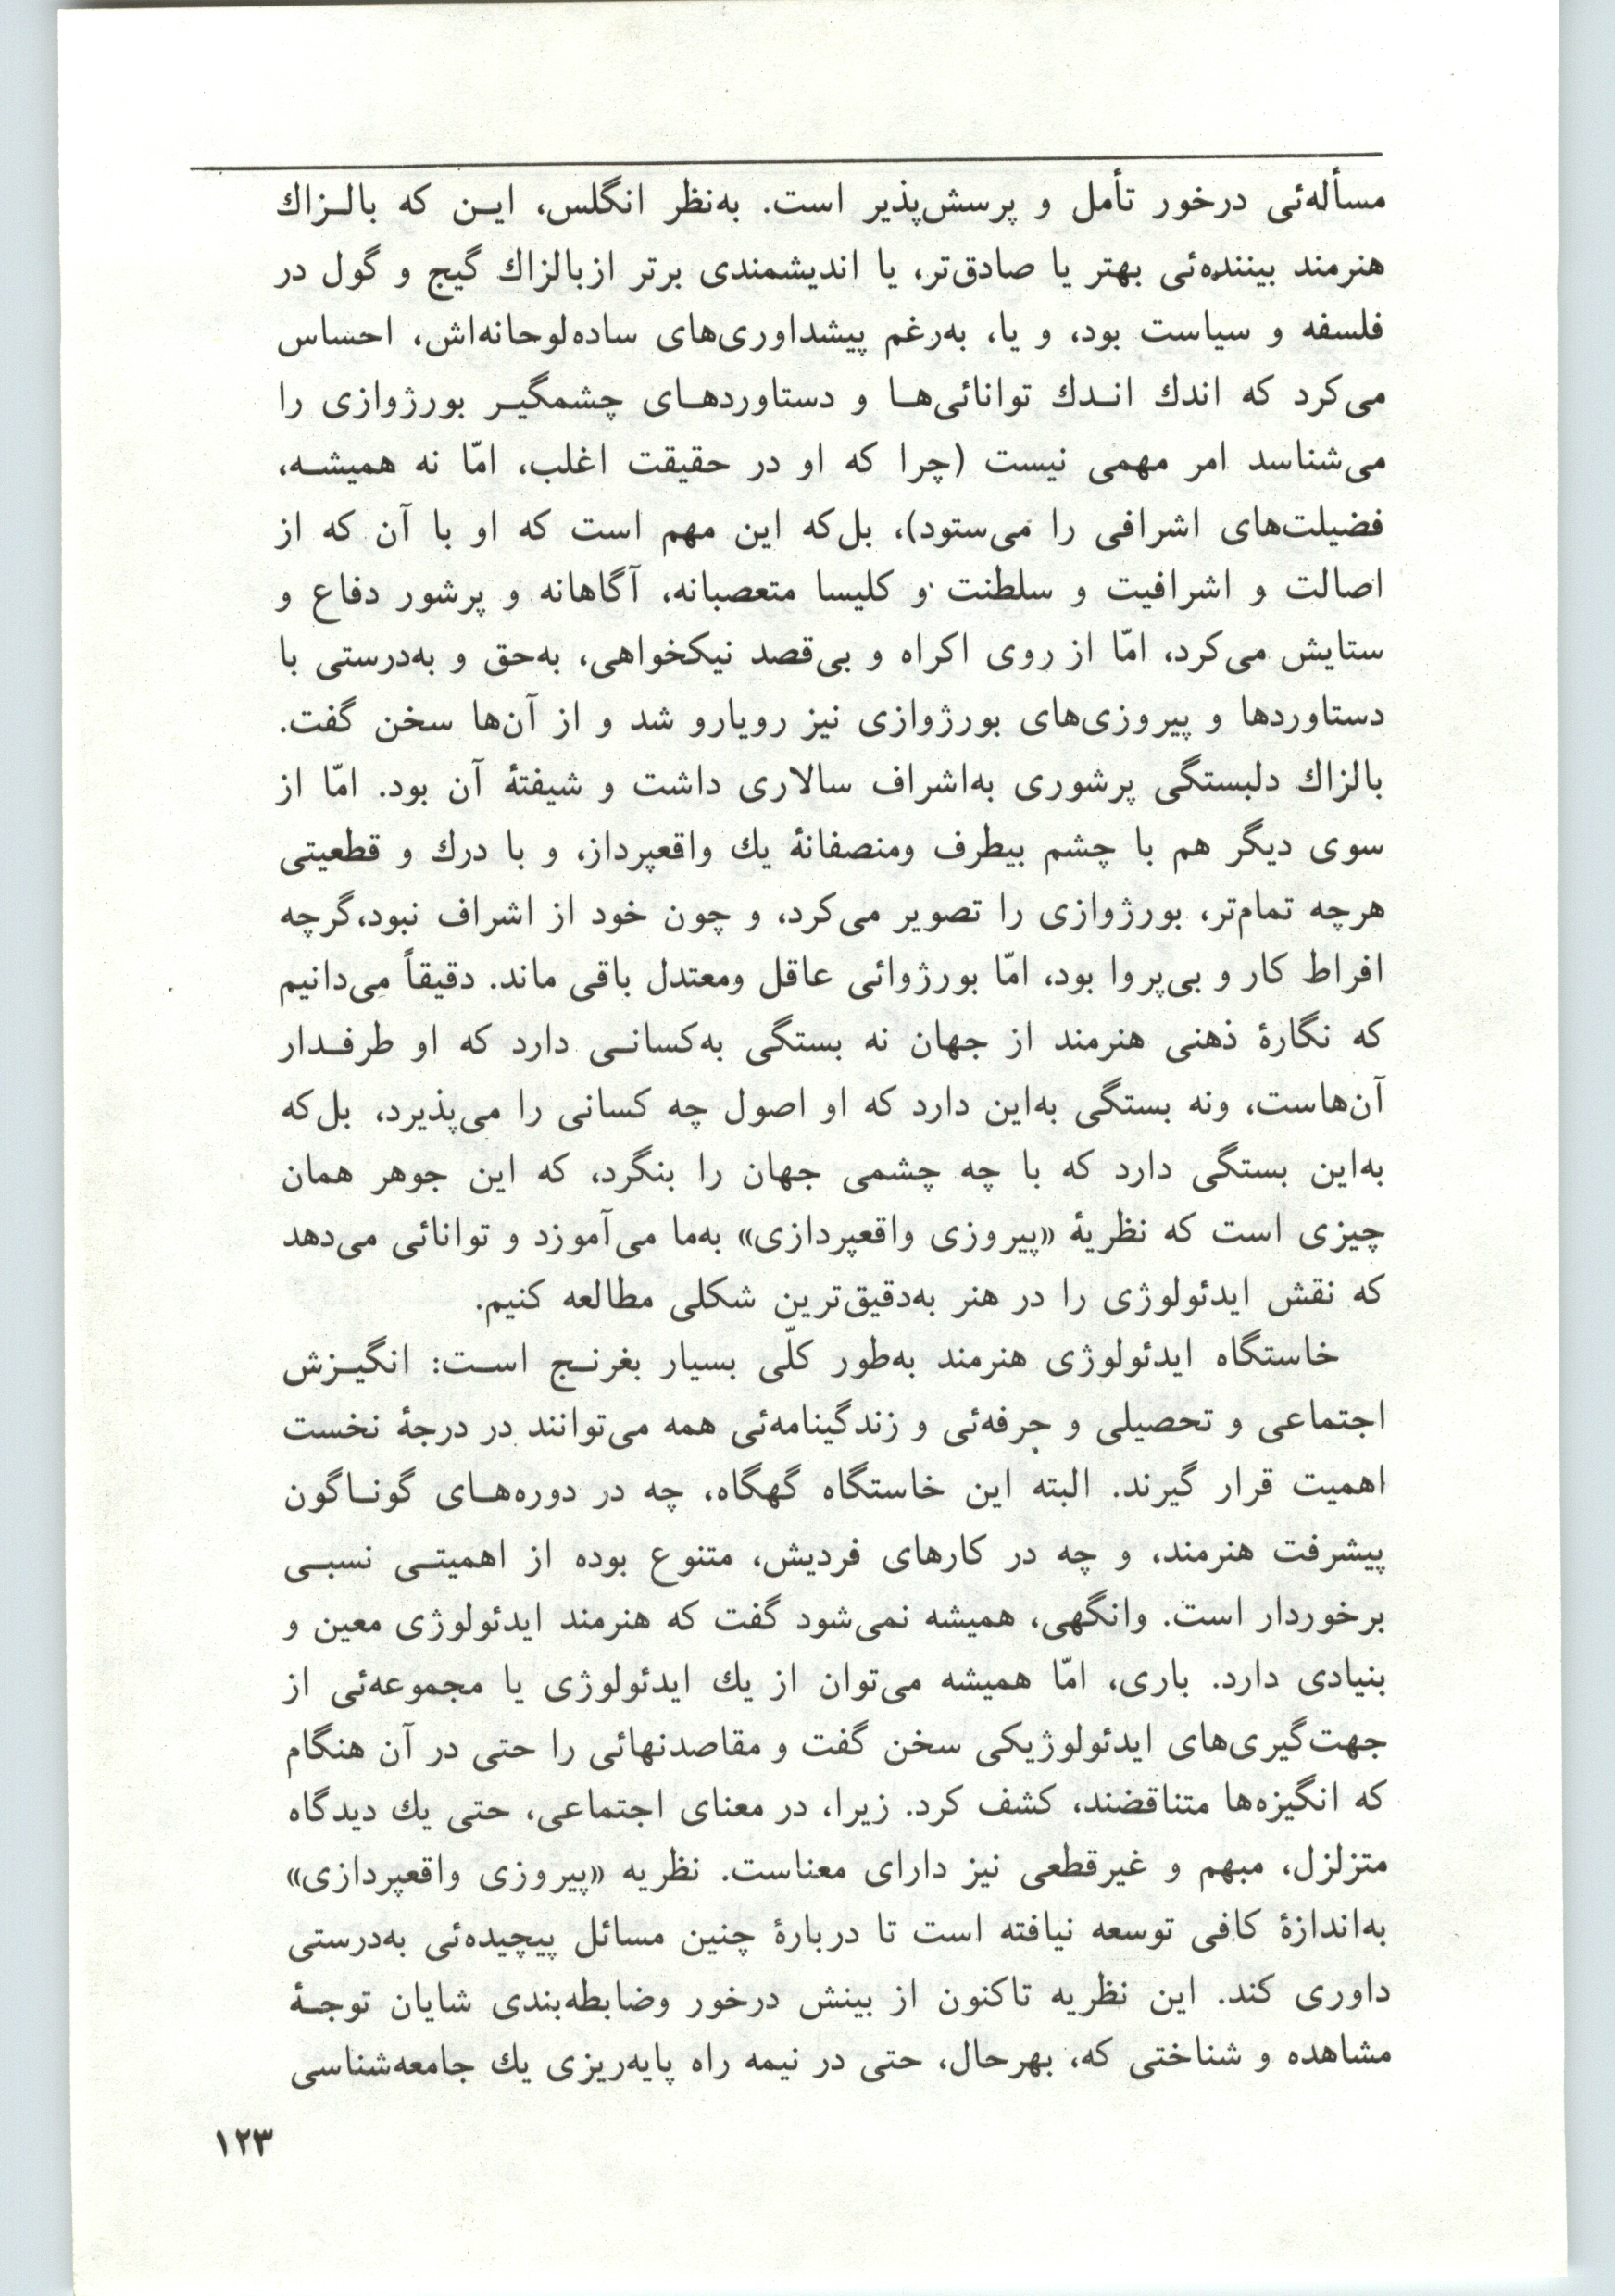 مسأله‌ئی درخور تأمل و پرسش‌پذیر است. به‌نظر انگلس، ایـن که بالـزاك
هنرمند بیننده‌ئی بهتر یا صادق‌تر، یا اندیشمندی برتر ازبالزاك گیج و گول در
فلسفه و سیاست بود، و یا، به‌رغم پیشداوری‌های ساده‌لوحانه‌اش، احساس
می‌کرد که اندك انـدك توانائی‌هـا و دستاوردهـای چشمگیـر بورژوازی را
می‌شناسد امر مهمی نیست (چرا که او در حقیقت اغلب، امّا نه همیشـه،
فضیلت‌های اشرافی را می‌ستود)، بل‌که این مهم است که او با آن که از
اصالت و اشرافیت و سلطنت و کلیسا متعصبانه، آگاهانه و پرشور دفاع و
ستایش می‌کرد، امّا از روی اکراه و بی‌قصد نیکخواهی، به‌حق و به‌درستی با
دستاوردها و پیروزی‌های بورژوازی نیز رویارو شد و از آن‌ها سخن گفت.
بالزاك دلبستگی پرشوری به‌اشراف سالاری داشت و شیفتهٔ آن بود. امّا از
سوی دیگر هم با چشم بیطرف ومنصفانهٔ یك واقعپرداز، و با درك و قطعیتی
هرچه تمام‌تر، بورژوازی را تصویر می‌کرد، و چون خود از اشراف نبود،گرچه
افراط کار و بی‌پروا بود، امّا بورژوائی عاقل ومعتدل باقی ماند. دقیقاً می‌دانیم
که نگارهٔ ذهنی هنرمند از جهان نه بستگی به‌کسانـی دارد که او طرفـدار
آن‌هاست، ونه بستگی به‌این دارد که او اصول چه کسانی را می‌پذیرد، بل‌که
به‌این بستگی دارد که با چه چشمی جهان را بنگرد، که این جوهر همان
چیزی است که نظریهٔ «پیروزی واقعپردازی» به‌ما می‌آموزد و توانائی می‌دهد
که نقش ایدئولوژی را در هنر به‌دقیق‌ترین شکلی مطالعه کنیم.
خاستگاه ایدئولوژی هنرمند به‌طور کلّی بسیار بغرنـج اسـت: انگیـزش
اجتماعی و تحصیلی و حرفه‌ئی و زندگینامه‌ئی همه می‌توانند در درجهٔ نخست
اهمیت قرار گیرند. البته این خاستگاه گهگاه، چه در دوره‌هـای گونـاگون
پیشرفت هنرمند، و چه در کارهای فردیش، متنوع بوده از اهمیتـی نسبـی
برخوردار است. وانگهی، همیشه نمی‌شود گفت که هنرمند ایدئولوژی معین و
بنیادی دارد. باری، امّا همیشه می‌توان از یك ایدئولوژی یا مجموعه‌ئی از
جهت‌گیری‌های ایدئولوژیکی سخن گفت و مقاصدنهائی را حتی در آن هنگام
که انگیزه‌ها متناقضند، کشف کرد. زیرا، در معنای اجتماعی، حتی یك دیدگاه
متزلزل، مبهم و غیرقطعی نیز دارای معناست. نظریه «پیروزی واقعپردازی»
به‌اندازهٔ کافی توسعه نیافته است تا دربارهٔ چنین مسائل پیچیده‌ئی به‌درستی
داوری کند. این نظریه تاکنون از بینش درخور وضابطه‌بندی شایان توجـهٔ
مشاهده و شناختی که، بهرحال، حتی در نیمه راه پایه‌ریزی یك جامعه‌شناسی
۱۲۳